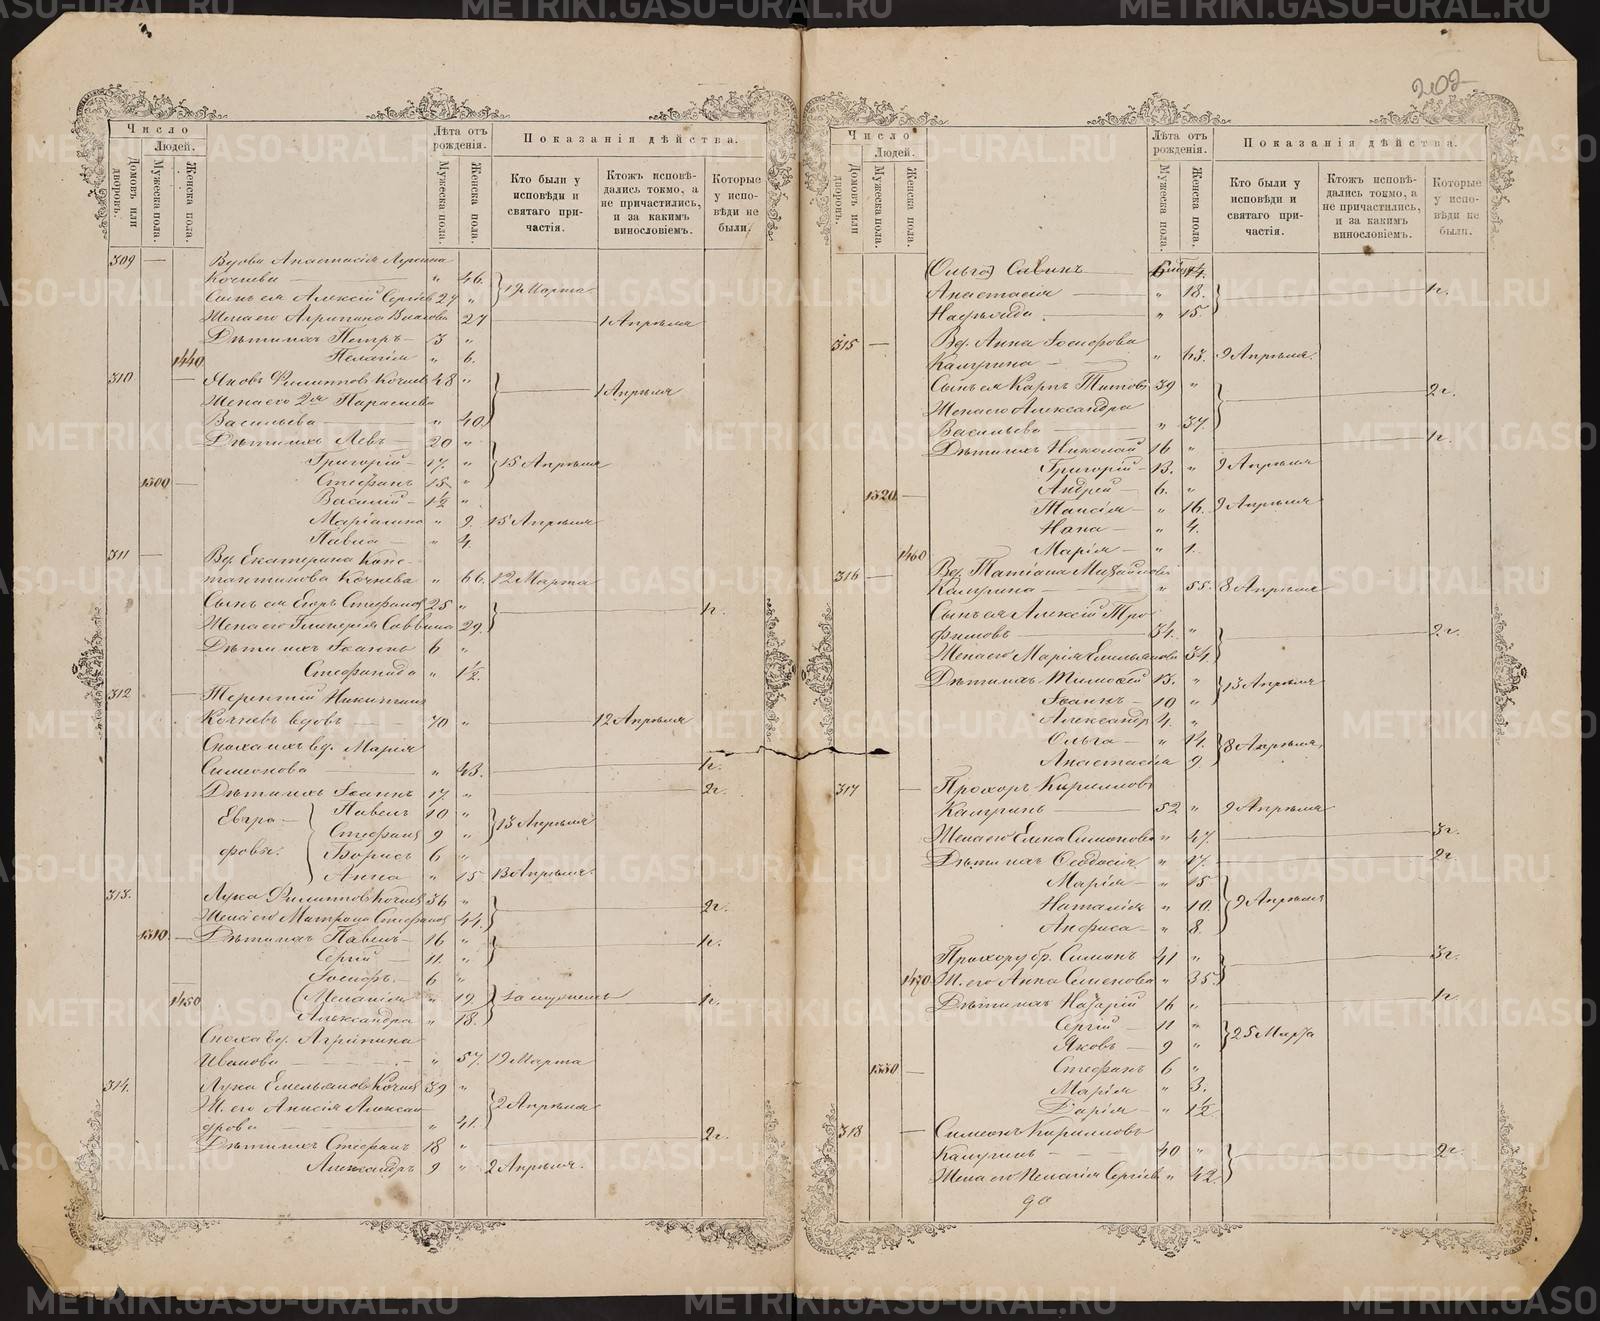 202
Число
Людей.
Домовъ или дворовъ.
Мужеска пола.
Женска пола.
Лѣта отъ рожденія.
Мужеска пола.
Женска пола.
Показанія дѣйства.
Кто были у исповѣди и святаго причастія.
Ктожъ исповѣдались токмо, а не причастились, и за какимъ винословіемъ.
Которые у исповѣди не были.
309 — Вдова Анастасія
Кочнева — " 46. 19 Марта
Сынъ ея Алексій Сергѣев 27 "
Жена его Агрипина Власова 27 1 Апрѣля
Дѣти ихъ Петръ — 3 "
1440 Пелагія " 6.
310 — Яковъ Филиптовъ Кочнев 48 " 1 Апрѣля
Жена его 2я Параскева
Васильева — " 40
Дѣти ихъ Левъ — 20 "
Григорій — 17. " 15 Апрѣля
1500 — Стефанъ 15 "
Василій — 1½ "
Маріанна " 9. 15 Апрѣля
Павла — " 4.
311 — Вд. Екатерина Конс-
тантинова Кочнева " 66. 12 Марта
Сынъ ея Егоръ Стефанов 25 " 1г.
Жена его Гликерія Саввина 29.
Дѣти ихъ Іоаннъ 6 "
Стефанида " 1½.
312 — Терентій Никитинъ
Кочневъ вдовъ — 70 " 12 Апрѣля
Сноха ихъ вд. Марія
Симеонова — " 43. 1г.
Дѣти ихъ Іоаннъ 17. " 2г.
Евгра- Павелъ 10 "
Стефанъ 9 " 13 Апрѣля
фовы. Борисъ 6 "
Анна " 15 13 Апрѣля.
313. Лука Филиптовъ Кочнев 36 " 2г.
Жена его Матрона Стефанов 44.
1510 — Дѣти ихъ Павелъ — 16 " 1г.
Сергій — 11. "
Іосифъ. — 6 "
1450 Меланія " 19. За мужемъ 1г.
Александра " 18.
Сноха вд. Агрипина
Иванова — " 57. 19 Марта
314. Лука Емельяновъ Кочнев 39 "
Ж. его Анисія Алексан- 2 Апрѣля
дрова — " 41.
Дѣти ихъ Стефанъ 18 " 2г.
Александръ 9 " 2 Апрѣля.
Число
Людей.
Домовъ или дворовъ.
Мужеска пола.
Женска пола.
Лѣта отъ рожденія.
Мужеска пола.
Женска пола.
Показанія дѣйства.
Кто были у исповѣди и святаго причастія.
Ктожъ исповѣдались токмо, а не причастились, и за какимъ винословіемъ.
Которые у исповѣди не были.
(Ольга)
Анастасія — " 18. 1г.
" 15
315 — Вд. Анна Іосифова
Калугина — " 63. 9 Апрѣля.
Сынъ ея Карпъ Титовъ 39 " 2г.
Жена его Александра
Васильева — " 37.
Дѣти ихъ Николай 16 " 1г.
Григорій — 13. " 9 Апрѣля
1520 — Андрей — 6. "
Таисія — " 16. 9 Апрѣля
" 4.
1460 Марія — " 1.
316 — Вд. Татіана Михайлова
Калугина — " 55. 8 Апрѣля
Сынъ ея Алексій Тро-
фимовъ — 34. " 2г.
Жена его Марія Емельянова 34.
Дѣти ихъ Тимофей 13. " 13 Апрѣля
Іоаннъ — 10 "
Александръ 4. "
Ольга — " 14. 8 Апрѣля,
Анастасія 9.
317 — Прохоръ Кирилловъ
Калугинъ — 52 " 9 Апрѣля
Жена его Елена Симонова " 47. 3г.
Дѣти ихъ Ѳеодосія " 17. 2г.
Марія — " 15
Наталія " 10. 9 Апрѣля
Анфиса — " 8.
Прохору бр. Симонъ 41 " 3г.
1470 Ж. его Анна Семенова " 35.
Дѣти ихъ Назарій 16 " 1г
Сергій — 11 " 25 Марта
Яковъ — 9 "
1530 — Стефанъ 6 "
Марія " 3.
Дарія — " 1½
318 — Симеонъ Кирилловъ
Калугинъ — 40 " 2г.
Жена его Пелагія Сергѣев " 42